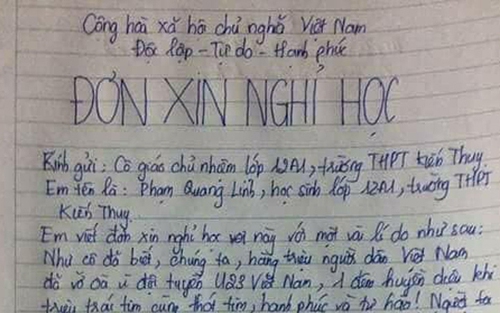 Cộng hoà xã hội chủ nghĩa Việt Nam
Độc lập - Tự do - Hạnh phúc
ĐƠN XIN NGHỈ HỌC
Kính gửi : Cô giáo chủ nhiệm lớp 12A1, trường THPT Kiến Thuỵ.
Em tên là : Phạm Quang Linh, học sinh lớp 12A1, trường THPT
Kiến Thuỵ.
Em viết đơn xin nghỉ học này với một vài lí do như sau:
Như cô đã biết, chúng ta, hàng triệu người dân Việt Nam
đã vỡ oà vì đội tuyển U23 Việt Nam, 1 đêm huyền diệu khi
triệu trái tim cùng thót tim, hạnh phúc và tự hào! Người ta